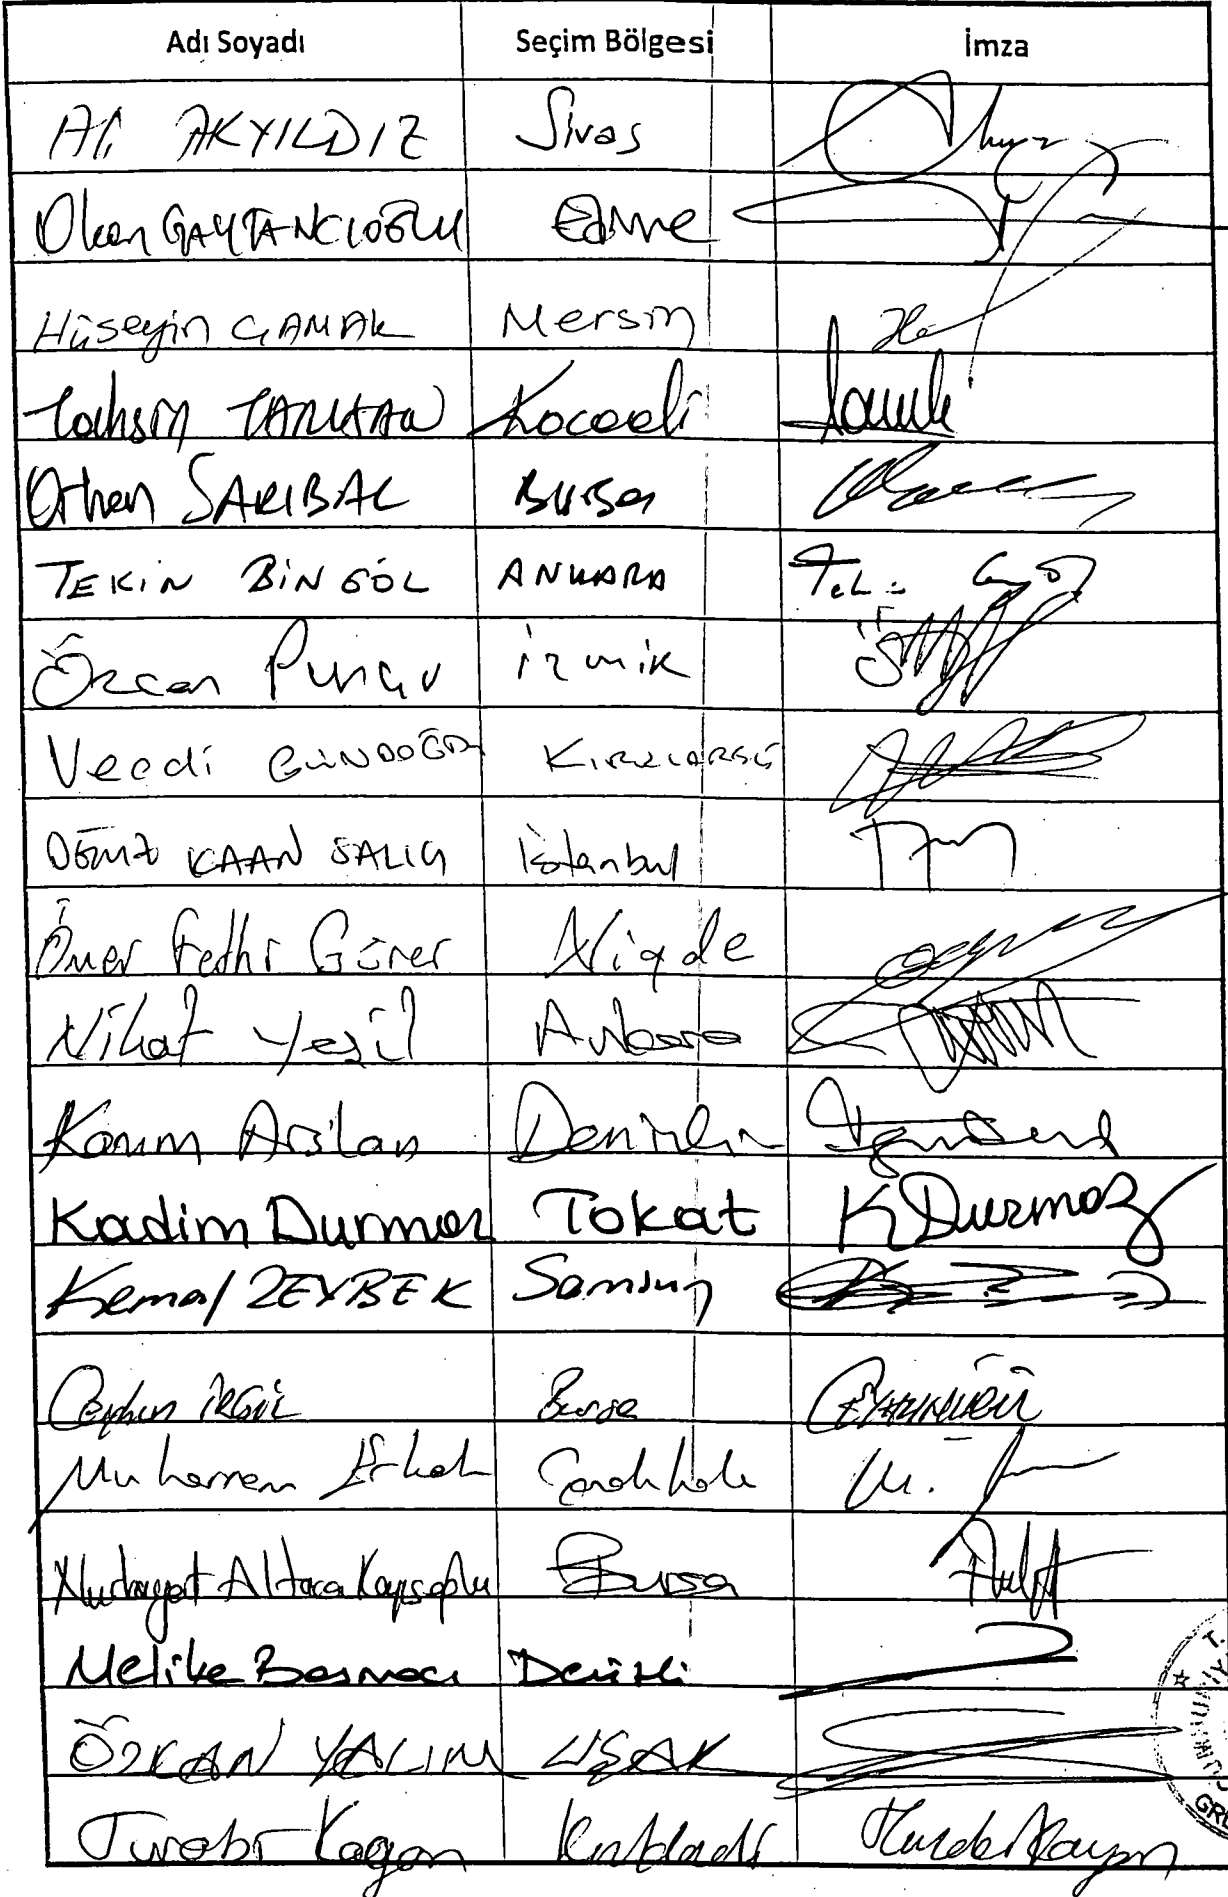 Adı Soyadı Seçim Bölgesi İmza
Ali AKYILDIZ Sivas
Okan GAYTANCIOĞLU Edirne
Hüseyin ÇAMAK Mersin
Tahsin TARHAN Kocaeli
Orhan SARIBAL BURSA
TEKİN BİNGÖL ANKARA Tekin
Özcan Purçu İzmir
Vecdi GÜNDOĞDU KIRKLARELİ
DENİZ KAAN SALICI İstanbul
Ömer Fethi Gürer Niğde
Nihat Yeşil Ankara
Kazım Arslan Denizli
Kadim Durmaz Tokat K Durmaz
Kemal ZEYBEK Samsun
Ceyhun İRGİL Bursa
Muharrem Erkek Çanakkale M.
Nurhayat Altaca Kayışoğlu Bursa
Melike Basmacı Denizli
ÖZKAN YALIM UŞAK
Turabi Kayan Kırklareli Turabi Kayan
T.